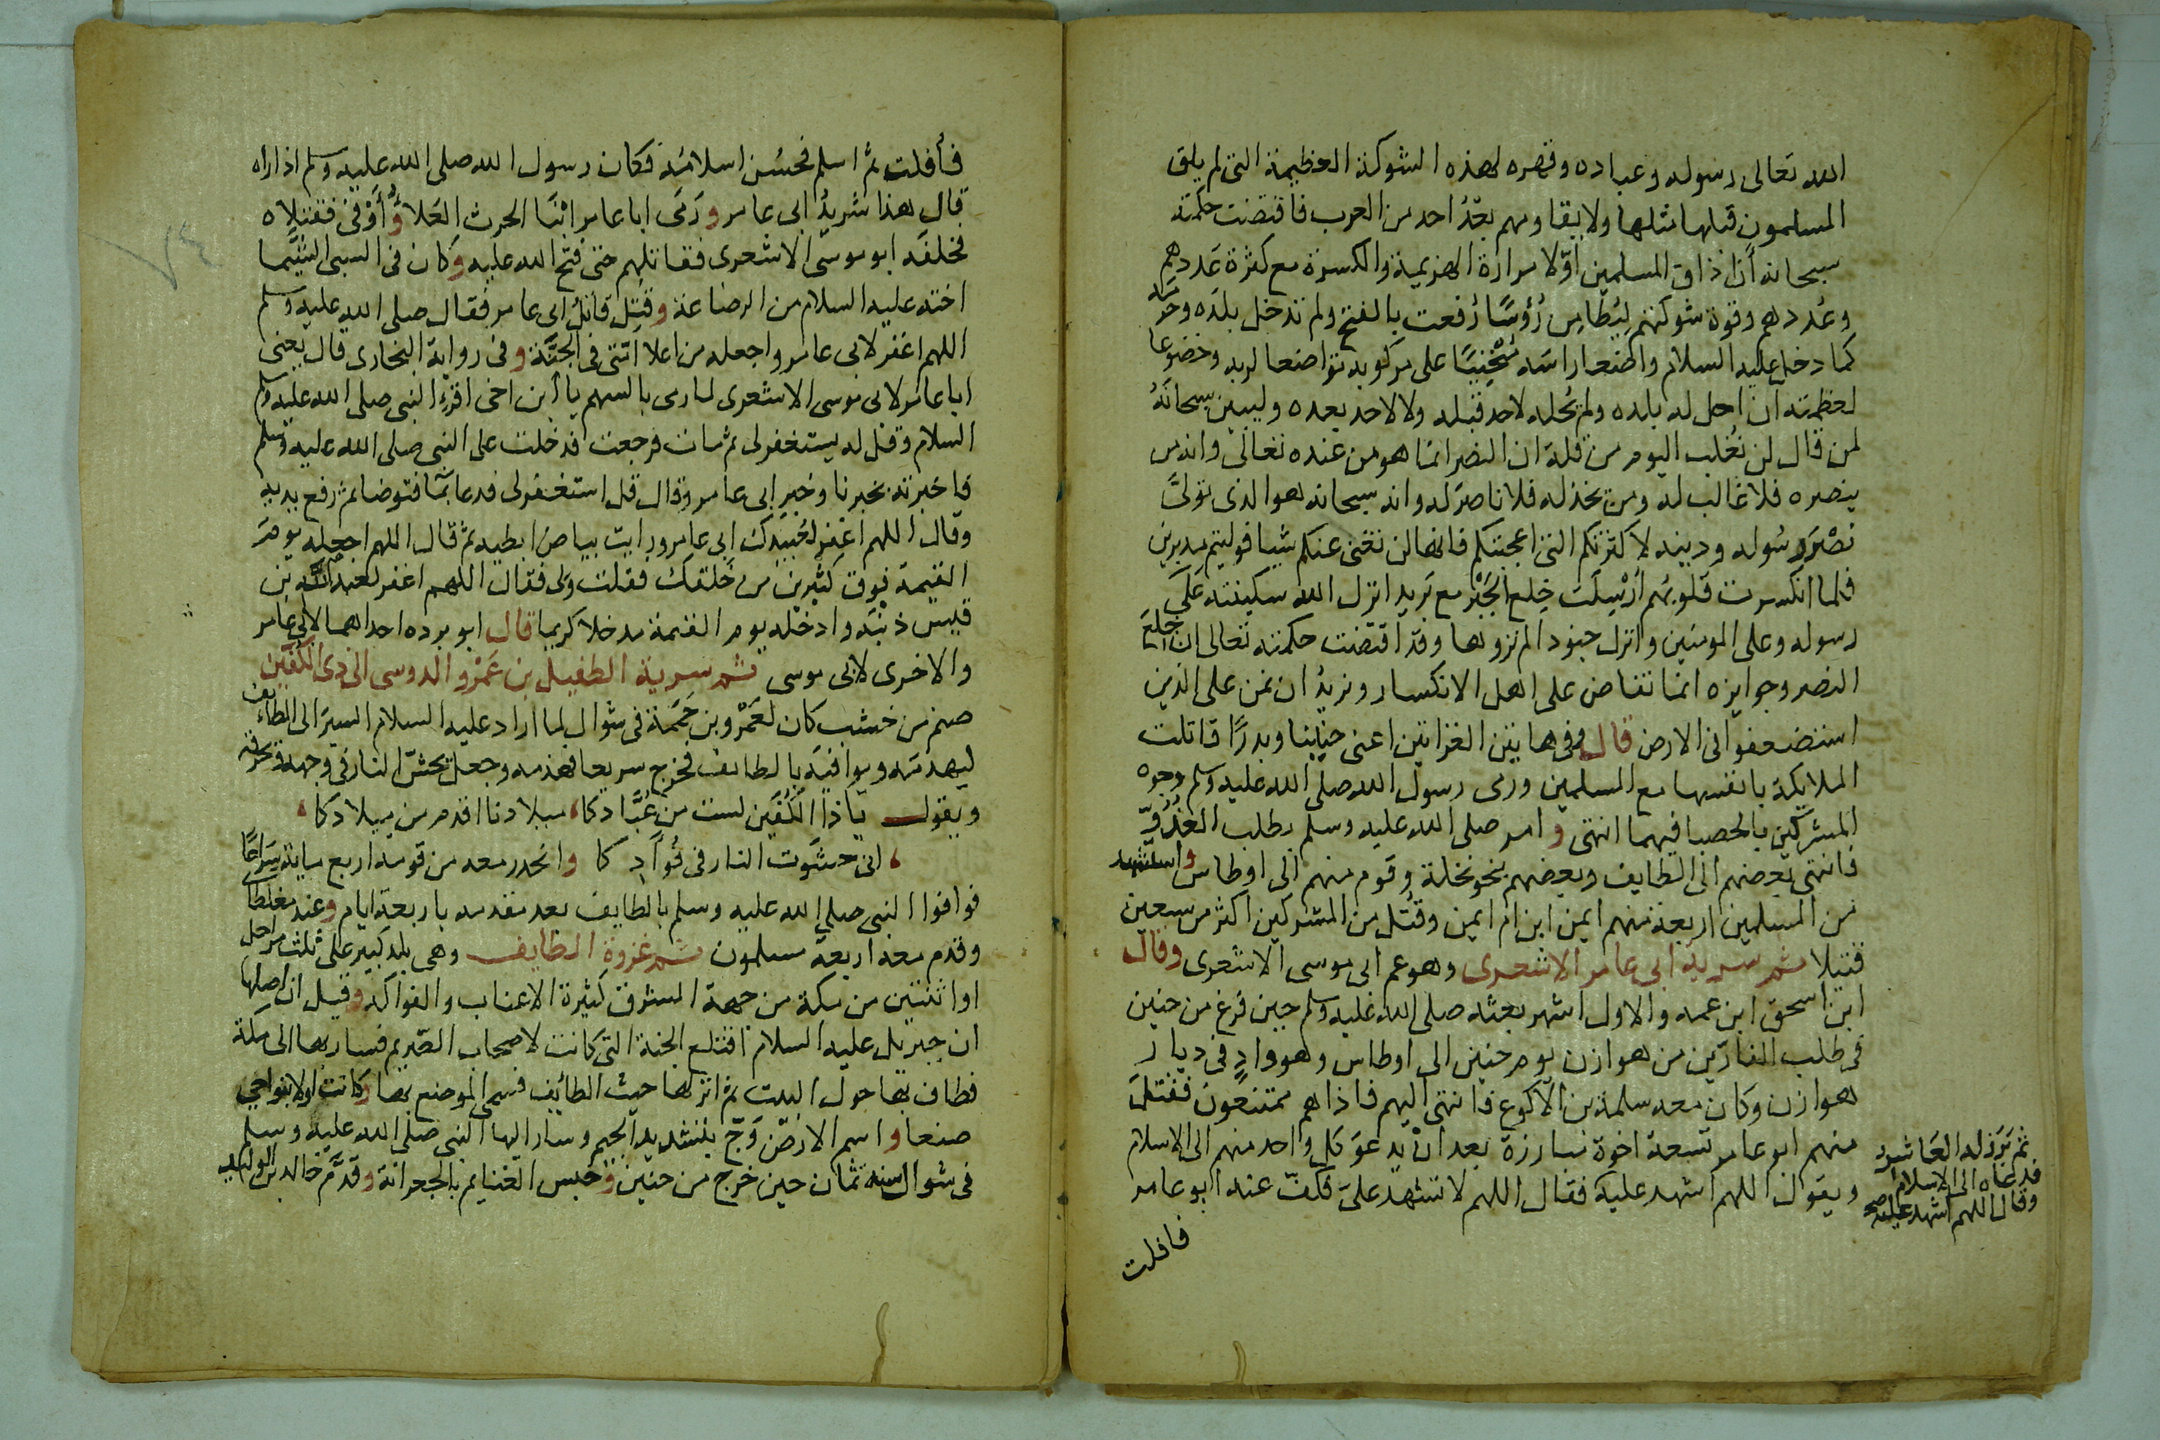 الله تعالى رسوله وعباده وقهره لهذه الشوكة العظيمة التى لم يلق
المسلمون قبلها مثلها ولا يقاومهم بعد احد من العرب فاقتضت حكمته
سبحانه أن اذاق المسلمين اوّلا مرارة الهزيمة والكسرة مع كثرة عَددهم
وعُددهم وقوة شوكتهم ليُطامِن رُؤسًا رُفعت بالفتح ولم تدخل بلده وحرمه
كما دخل عليه السلام واضعا راسه مُنحنِيًا على مركوبه تواضعا لربه وخضوعا
لعظمته ان احل له بلده ولم يُحله لاحد قبله ولا لاحد بعده وليبين سبحانهُ
لمن قال لن نُغلب اليوم من قلة ان النصر انما هو من عنده تعالى وانه من
ينصره فلا غالب له ومن يخذله فلا ناصرَ له وانه سبحانه هو الذى تولىَّ
نصْرَ رسُوله ودينه لا كثرتكم التى اعجبتكم فانها لن تغنى عنكم شيا فوليتم مدبرين
فلما انكسرت قلوبهم أُرسِلَت خِلع الجَبْر مع بَريد انزل الله سكينته عَلَى
رسوله وعلى المومنين وانزل جنودا لم تروها وقد اقتضت حكمته تعالى ان خلعَ
النصر وجوايزه انما تفاض على اهل الانكسار ونريدُ ان نمن على الذين
استضعفوا فى الارض قال وفى هاتين الغزاتين اعنى حنينا وبدرًا قاتلت
الملايكة بانفسها مع المسلمين ورمى رسول الله صلى الله عليه وسلم وجوه
المشركين بالحصبا فيهما انتهى و امر صلى الله عليه وسلم بطلب العَدُوِّ
فانتهى بعضهم الى الطايف وبعضهم نحو نخلة وقوم منهم الى اوطاس واستشهد
من المسلمين اربعة منهم ايمن ابن ام ايمن وقتُل من المشركين اكثر من سبعين
قتيلا ثم سرية ابى عامر الاشعرى وهو عم ابى موسى الاشعرى وقال
ابن اسحق ابن عمه والاول اشهر بعثه صلى الله عليه وسلم حين فرغ من حنين
فى طلب الفارّين من هوازن يوم حنين الى اوطاس وهو وادٍ فى ديار
هوازن وكان معه سلمة بن الاكوع فانتهى اليهم فاذا هم ممتنعون فقتلَ
منهم ابو عامر تسعة اخوة مبارزة بعد ان يدعوَ كل واحد منهم الى الاسلام
ويقول اللهم اشهد عليه فقال اللهم لا تشهد علىَّ فكفّ عنه ابو عامر
ثم بَرَز له العَاشر
فدعاه الى الاسلام
وقال اللهم اشهد عليه صح
فافلت
فأفلت ثم اسلم فحسُن اسلامُه فكان رسول الله صلى الله عليه وسلم اذا راه
قال هذا شريدُ ابى عامر ورَمَى ابا عامر ابْنَا الحرث العَلاءُ وأوْفى فقتلاه
فخلفَه ابو موسى الاشعرى فقاتلهم حتى فتح الله عليه وكان فى السبى الشَّيْما
اخته عليه السلام من الرضاعة وقُتِل قاتلُ ابى عامر فقال صلى الله عليه وسلم
اللهم اغفر لابى عامر واجعله من اعلا امّتى فى الجَنَّة وفى رواية البخارى قال يعنى
ابا عامر لابى موسى الاشعرى لما رمى بالسهم يا ابن اخى اقرِءِ النبى صلى الله عليه وسلم
السلام وقل له يستغفر لى ثم مات فرجعت فدخلت على النبى صلى الله عليه وسلم
فاخبرته بخبرنا وخبرِ ابى عامر وقال قل استغفر لى فدعا بمآ فتوضا ثم رفع يديه
وقال اللهم اغفِر لعُبَيدِكَ ابى عامر ورايت بياضَ ابطيه ثم قال اللهم اجعله يومَ
القيمة فوق كثيرٍ من خلقك فقلت ولى فقال اللهم اغفر لعبد الله بن
قيس ذنبَه وادخله يوم القيمة مدخلا كريما قال ابو برده احداهما لابى عامر
والاخرى لابى موسى ثم سرية الطفيل بن عَمْرو الدوسى الى ذى الكَفَّين
صنم من خشب كان لعَمْرو بن حَمَمَة فى شوال لما اراد عليه السلام السيرَ الى الطائف
ليهدمَه ويوافيَه بالطايف فخرج سريعا فهدمه وجعل يحشّ النار فى وجهه ويحرقه
ويقول يا ذا الكَفَين لست من عُبّادكا، ميلادنا اقدم من ميلادكا،
، انى حشَوت النار فى فُوآدِكا وانحدر معه من قومه اربع ماية سِرَاعًا
فوافوا النبى صلى الله عليه وسلم بالطايف بعد مقدمه باربعة ايام وعند مغلطاى
وقدم معه اربعة مسلمون ثم غزوة الطايف وهى بلد كبير على ثلث مراحل
او اثنتين من مكة من جهة المشرق كثيرة الاعناب والفواكه وقيل ان اصلها
ان جبريل عليه السلام اقتلع الجنة التى كانت لاصحاب الصّريم فسار بها الى مكة
فطاف بها حول البيت ثم انزلها حيث الطائف فسمى الموضع بها وكانت اولا بنواحى
صنعا واسم الارض وَجّ بتشديد الجيم وسار اليها النبى صلى الله عليه وسلم
فى شوال سنه ثمان حين خرج من حنين وحَبس الغنايم بالجعرانة وقدَّم خالد بن الوليد